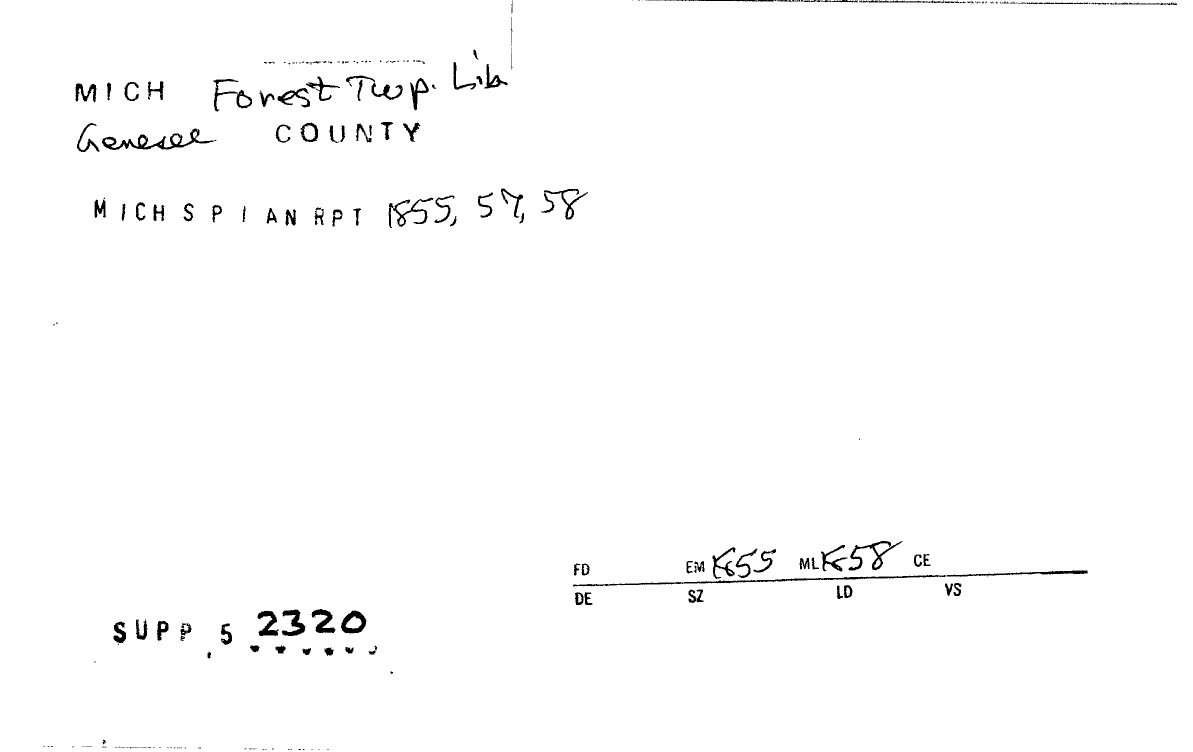 MICH Forest Twp. Lib
Genesee COUNTY
MICH S P I AN RPT 1855, 57, 58
FD EM 1855 ML 1858 CE
DE SZ LD VS
SUPP. 5 2320